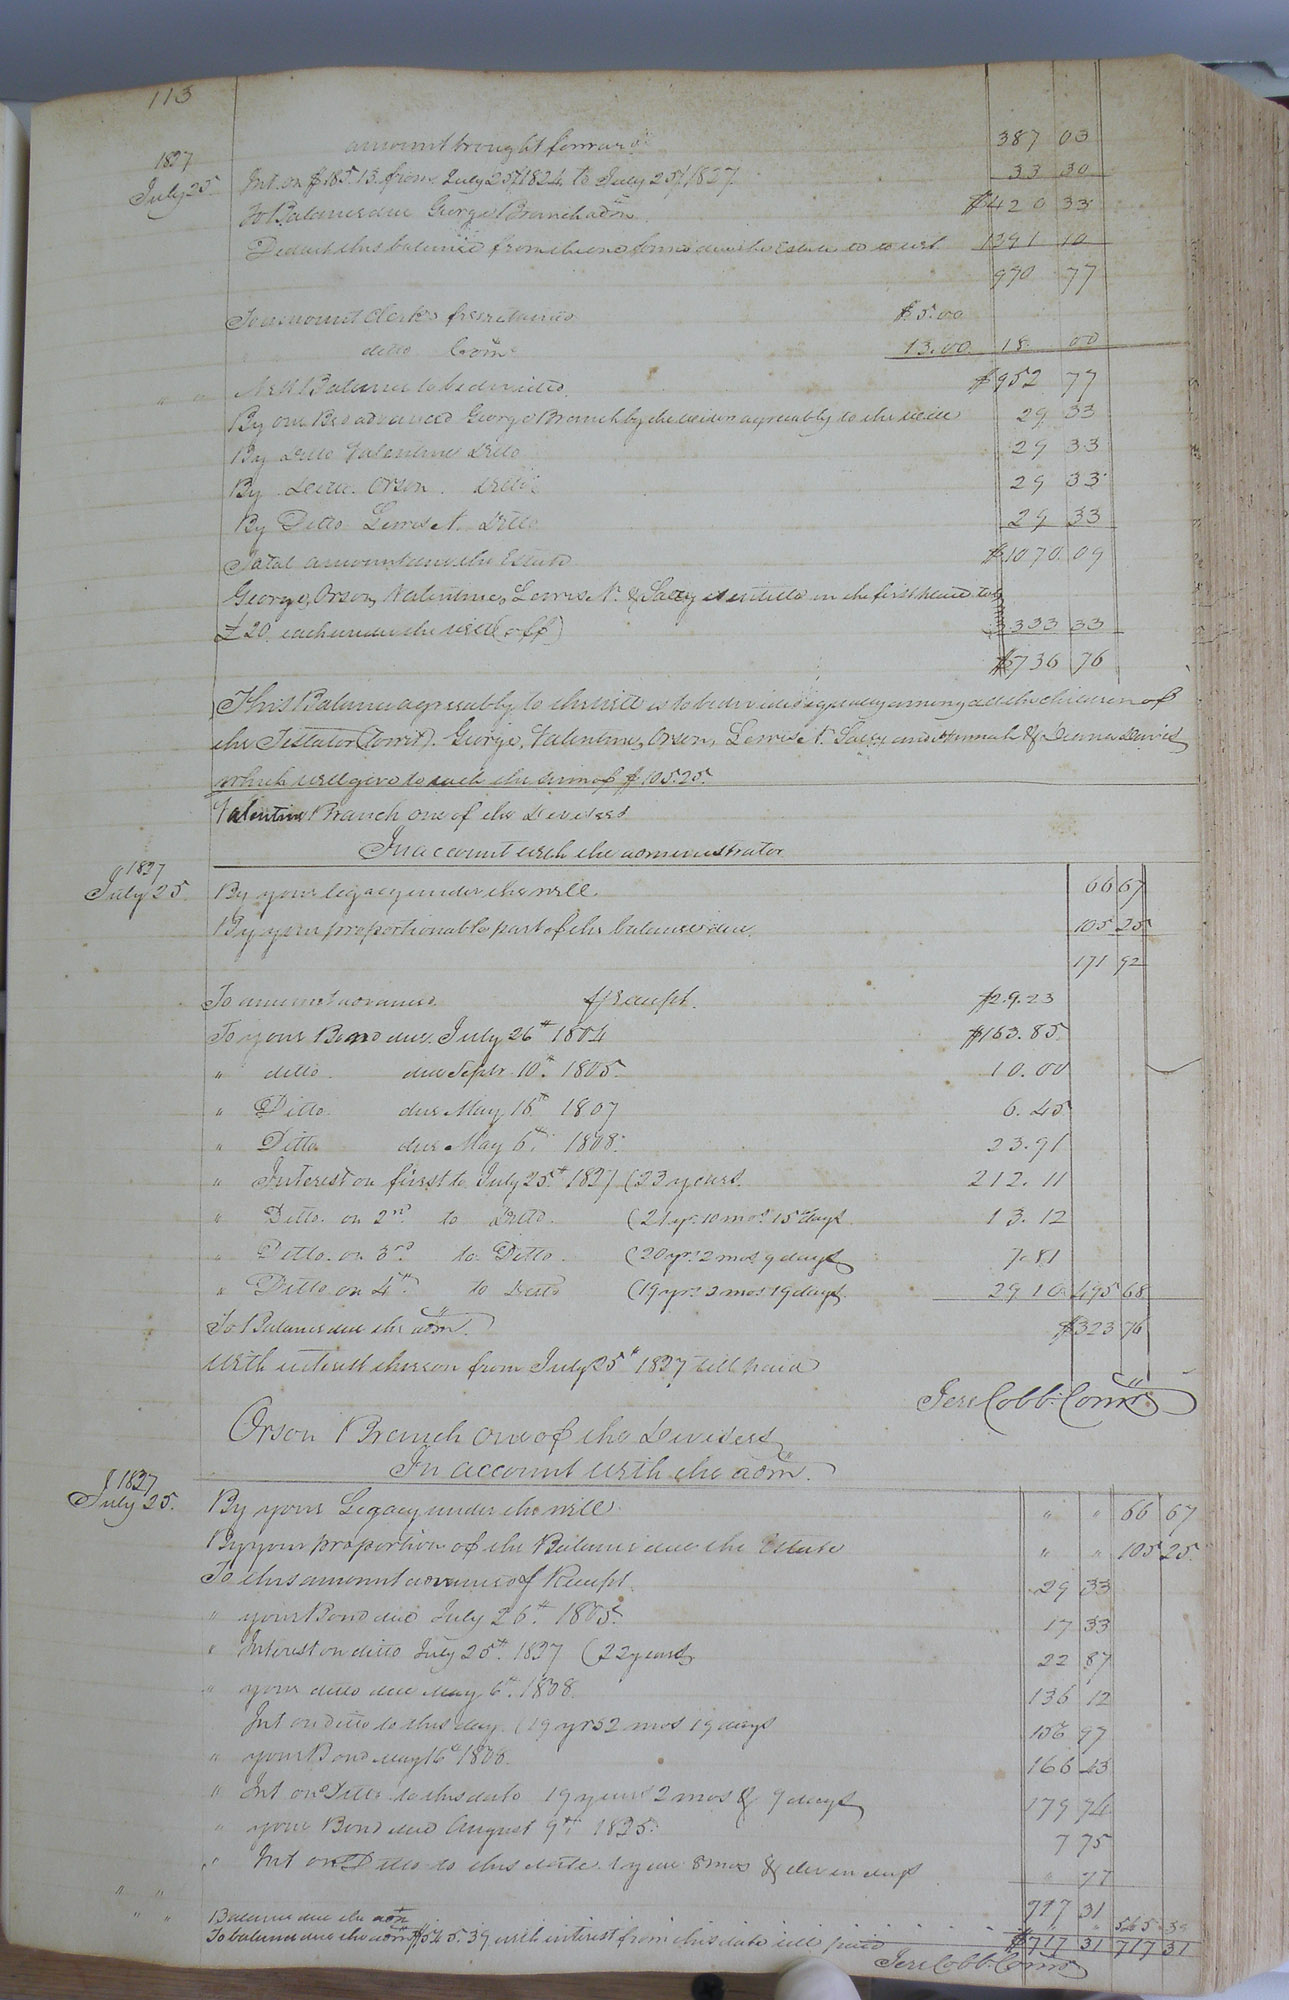 113
amount brought forward 387 03
1827
July 25 Int. on $185.13 from July 25th 1824 to July 25th 1827 33 30
To Balance due George Branch adm $420 33
Deduct this balance from the due the Estate 1391 10
970 77
To amount Clerks fees $5.00
ditto Com 13.00 18 00
" " Nett Balance to be divided $952 77
By one Bed advanced George Branch by the widow agreeably to the will 29 33
By Ditto Valentine Ditto 29 33
By Ditto Orson Ditto 29 33
By Ditto Lewis N. Ditto 29 33
Total amount due the Estate $1070.09
George, Orson, Valentine, Lewis N. & Sally is entitled in the first place to
£20 each under the will (off) 333 33
$736 76
This Balance agreeably to the will is to be divided equally among all the children of
the Testator (towit). George, Valentine, Orson, Lewis N. Sally and Hannah & Davis
which will give to each the sum of $105.25.
Valentine Branch one of the Devisees
In account with the administrator
1827
July 25 By your legacy under the will 66 67
By your proportionable part of the balance due 105 25
171 92
To amount advanced Receipt. $29.23
To your Bond due July 26th 1804 $163.85
" ditto due Septr. 10th 1805 10.00
" Ditto due May 16th 1807 6.45
" Ditto due May 6th 1808 23.91
" Interest on first to July 25th 1827 (23 years 212.11
" Ditto on 2nd to Ditto (21 yrs 10 mos 15 days 13.12
" Ditto on 3rd to Ditto (20 yrs 2 mos 9 days 7.81
" Ditto on 4th to Ditto (19 yrs 2 mos 19 days 29 10 495 68
To Balance due the adm. $323 76
With interest thereon from July 25th 1827 till paid
Jere Cobb. Comr
Orson Branch one of the Devisees
In account with the adm.
1827
July 25. By your Legacy under the will " " 66 67
By your proportion of the Balance due the Estate " " 105 25
To this amount advanced Receipt 29 33
" your Bond due July 26th 1805 17 33
" Interest on ditto July 25th 1827 (22 years 22 87
" your ditto due May 6th 1808 136 12
Int on Ditto to this day (19 yrs 2 mos 19 days 156 97
" your Bond May 16th 1808 166 43
" Int on Ditto to this date 19 years 2 mos & 9 days 179 74
" your Bond due August 9th 1825 7 75
" Int on Ditto to this date 1 year 8 mos & days " 77
" " Balance due the adm 717 31
" " To balance due the adm $545.39 with interest from this date till paid " " 545 39
$717 31 717 31
Jere Cobb. Comr